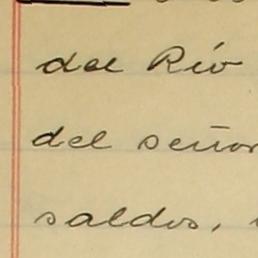 del Río
del señor
saldos,